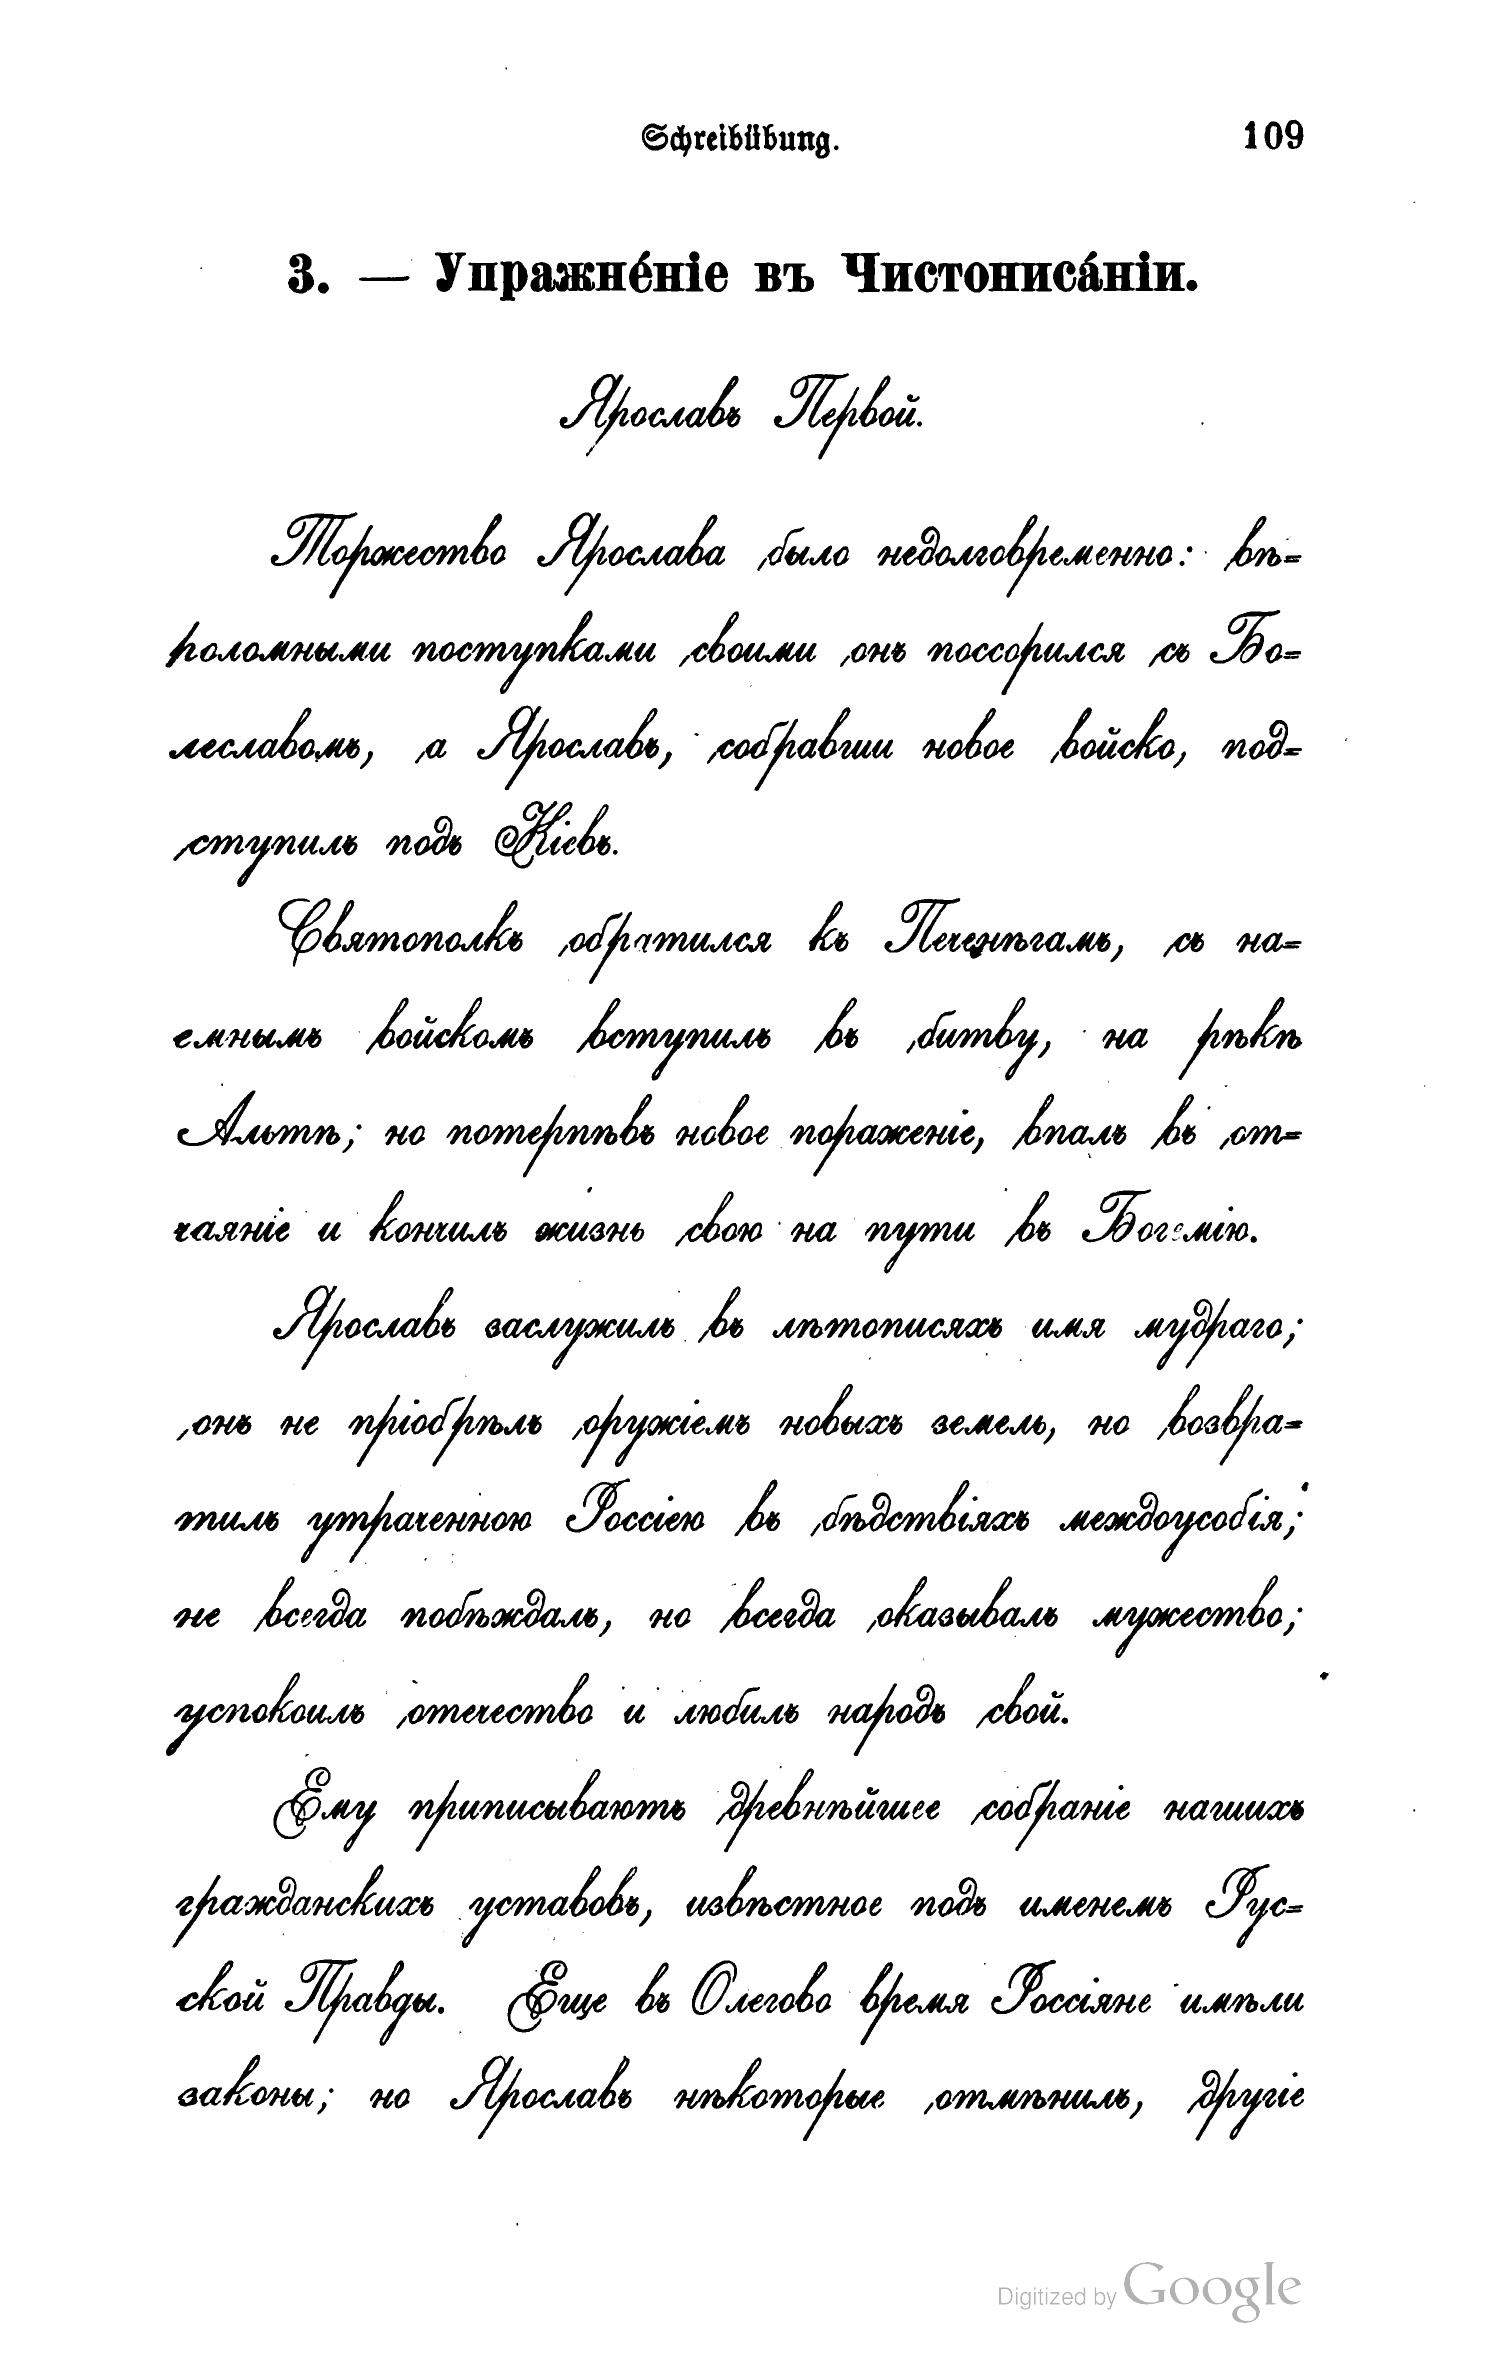 Schreibübung. 109
3. — Упражне́ніе въ Чистониса́ніи.
Ярославъ Первой.
Торжество Ярослава было недолговременно: вѣ=
роломными поступками своими онъ поссорился съ Бо=
леславомъ, а Ярославъ, собравши новое войско, под=
ступилъ подъ Кіевъ.
Святополкъ обратился къ Печенѣгамъ, съ на=
емнымъ войскомъ вступилъ въ битву, на рѣкѣ
Альтѣ; но потерпѣвъ новое пораженіе, впалъ въ от=
чаяніе и кончилъ жизнь свою на пути въ Богемію.
Ярославъ заслужилъ въ лѣтописяхъ имя мудраго;
онъ не пріобрѣлъ оружіемъ новыхъ земель, но возвра=
тилъ утраченною Россіею въ бѣдствіяхъ междоусобія;
не всегда побѣждалъ, но всегда оказывалъ мужество;
успокоилъ отечество и любилъ народъ свой.
Ему приписываютъ древнѣйшее собраніе нашихъ
гражданскихъ уставовъ, извѣстное подъ именемъ Рус=
ской Правды. Еще въ Олегово время Россіяне имѣли
законы; но Ярославъ нѣкоторые отмѣнилъ, другіе
Digitized by Google